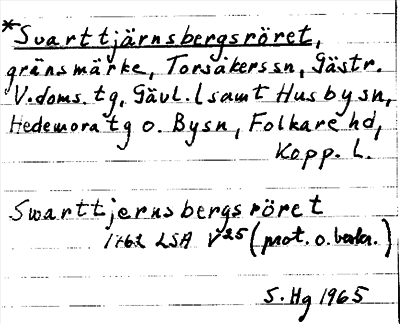 *Svarttjärnsbergsröret,
gränsmärke, Torsåkers sn, Gästr.
V. doms. tg, Gävl. l samt Husby sn,
Hedemora tg o. By sn, Folkare hd,
Kopp. L.
Swarttjernsbergsröret
1762 LSA V25 (prot. o. beskr.)
S. Hg 1965